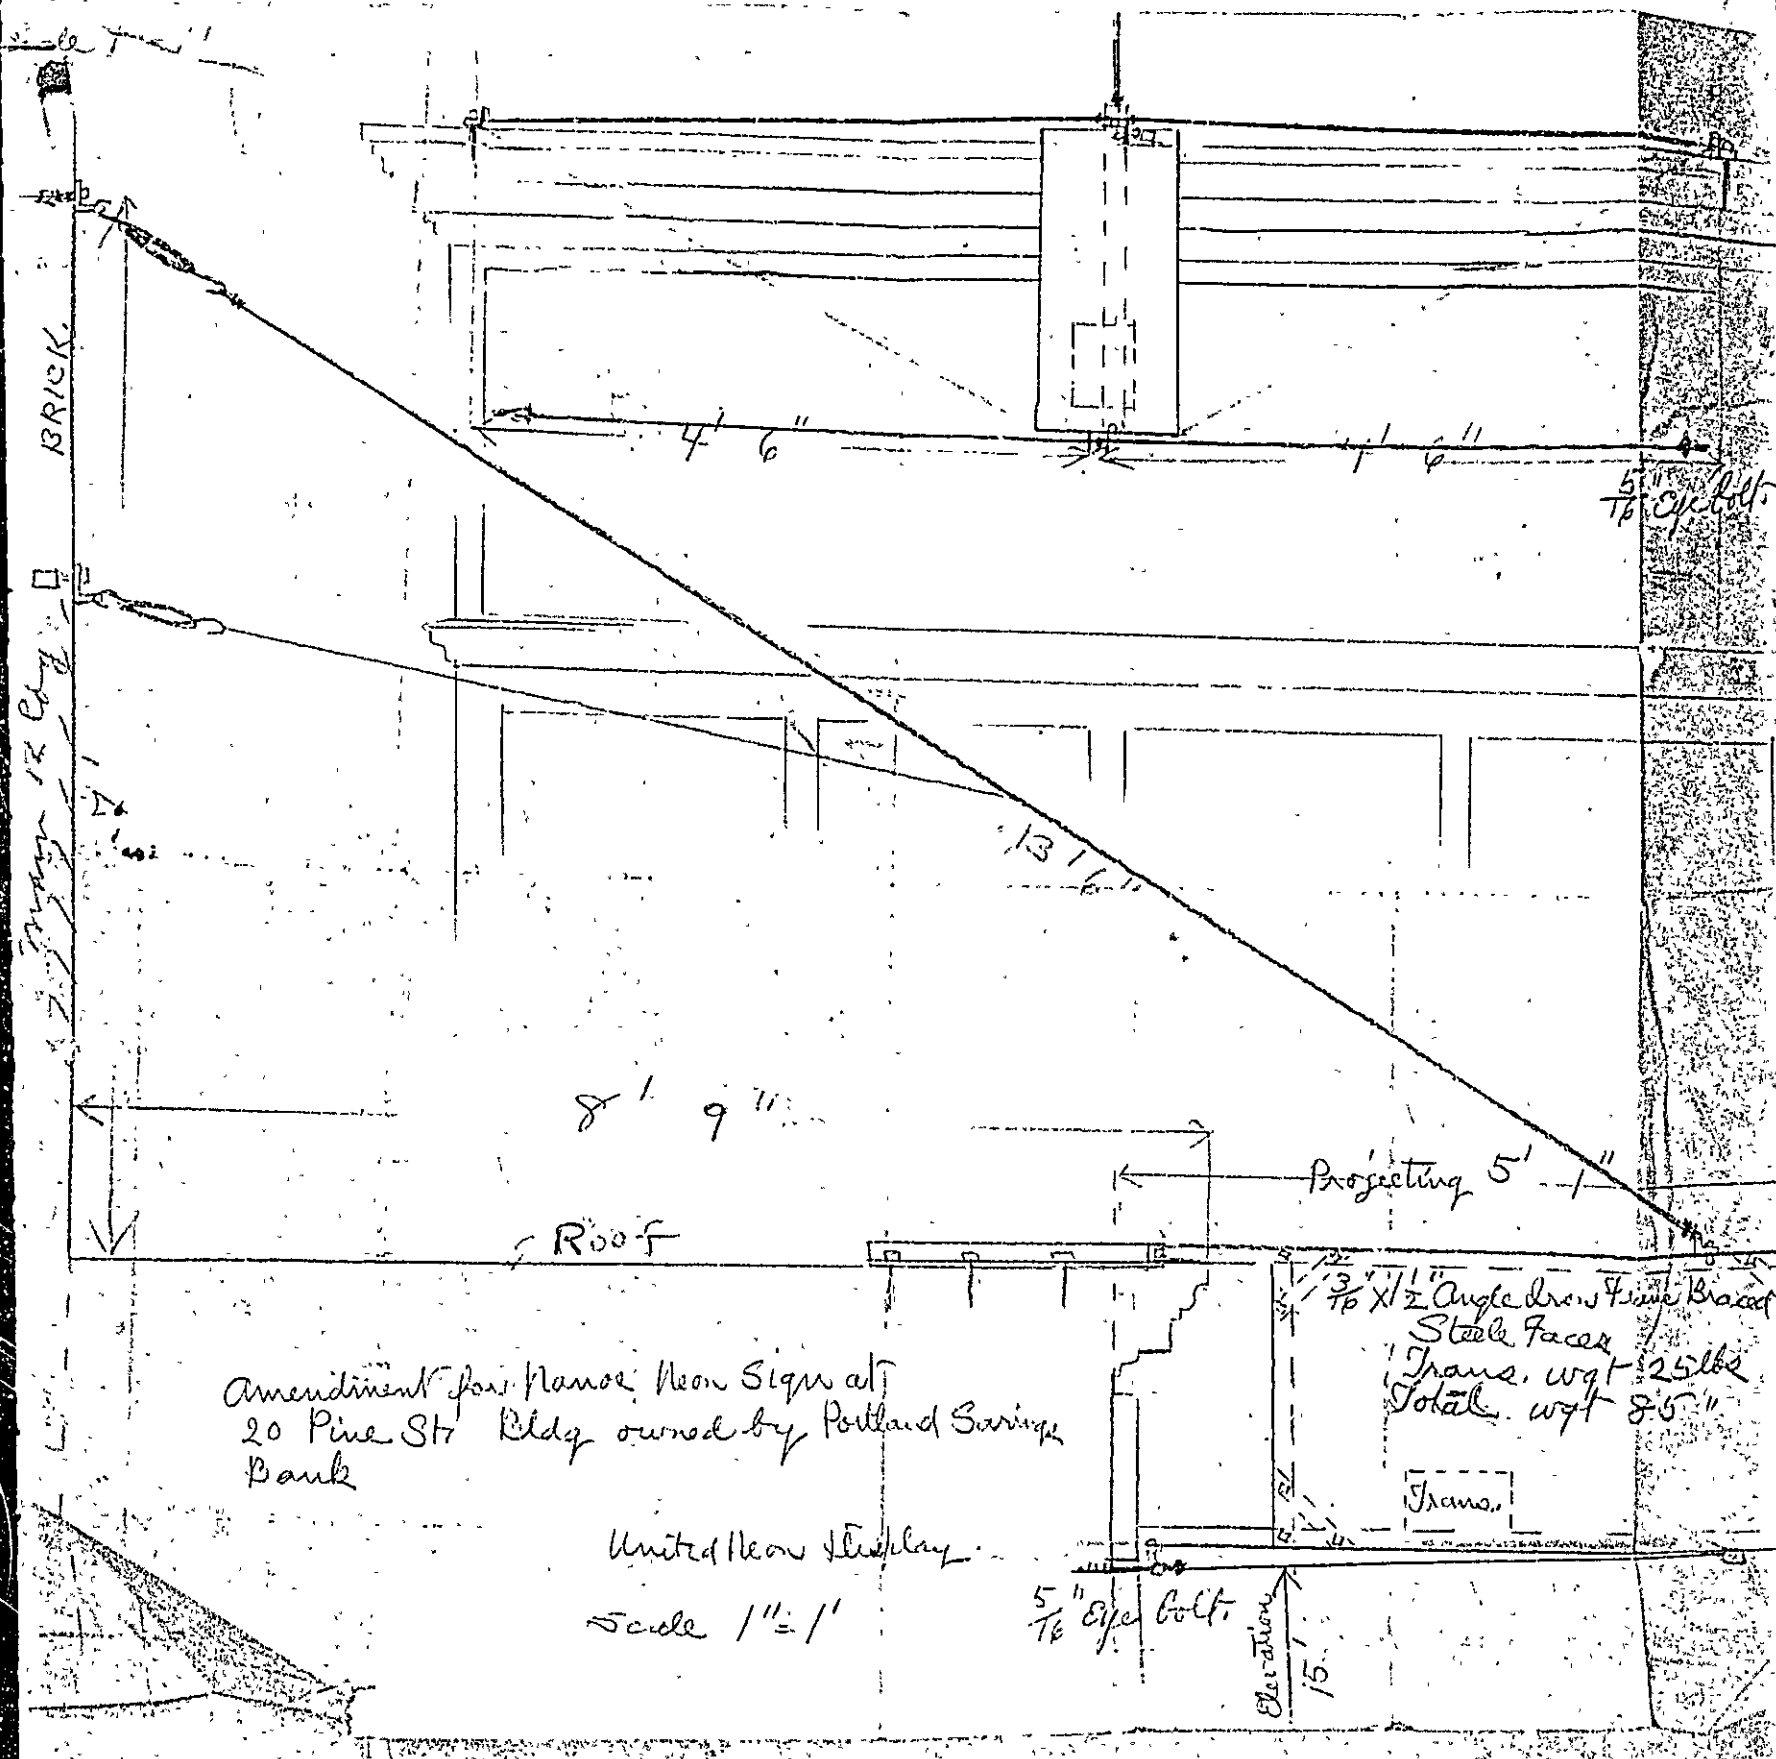 BRICK.
4' 6"
6"
5/16" Eye bolt.
7'
13' 6"
8' 9"
Projecting 5' 1"
Roof
3/16" X 1 1/2" Angle Iron Frame Braced
Steele Faces
Trans. wgt 25 lbs
Total. wgt 85 "
Amendment for Neon Sign at
20 Pine Str Bldg owned by Portland Savings
Bank
Trans.
United Neon Display
Scale 1" = 1'
5/16" Eye bolt.
Elevation
15'